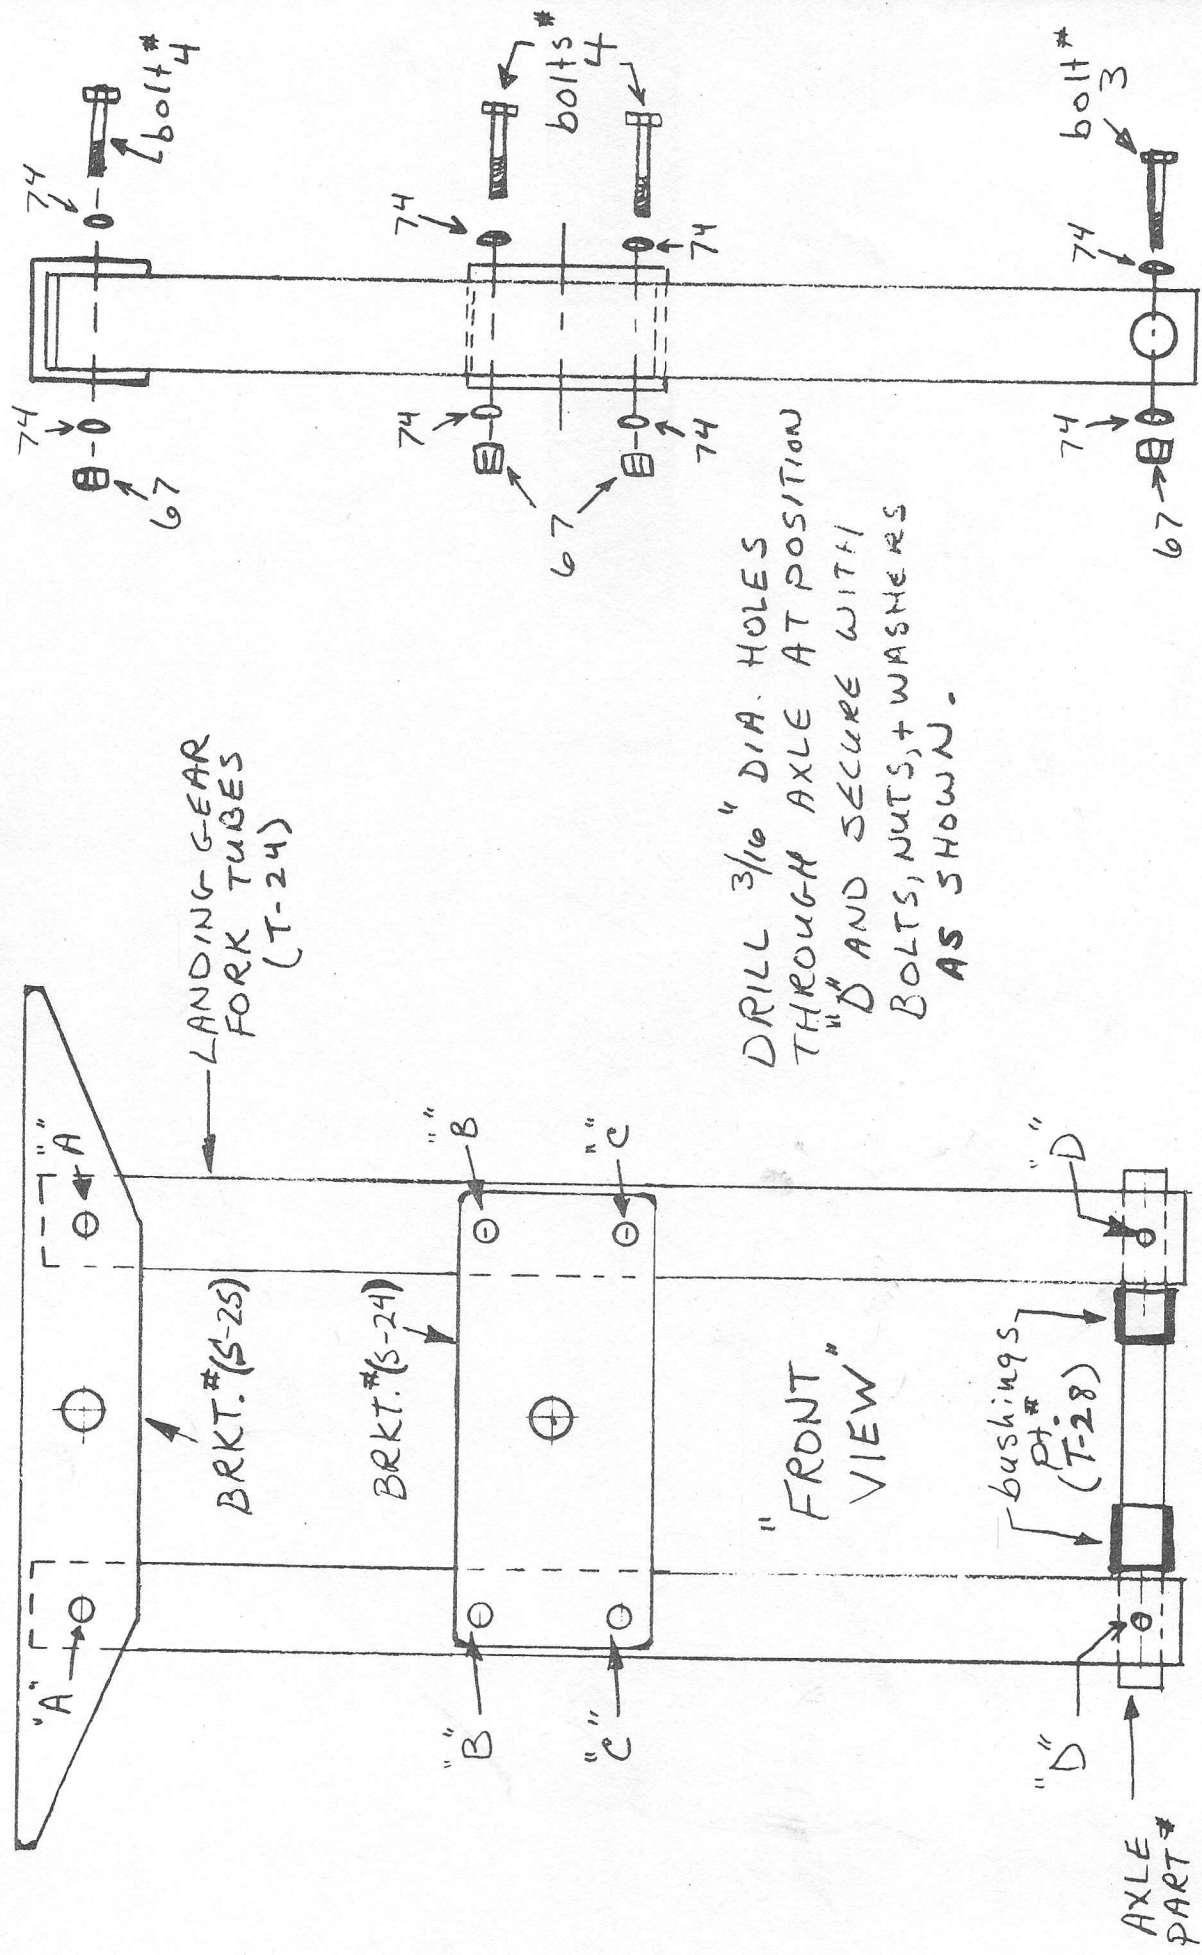 "A"
"A"
LANDING GEAR
FORK TUBES
(T-24)
BRKT.#(S-25)
BRKT.#(S-24)
"B"
"B"
"C"
"C"
"FRONT
VIEW"
bushings
pt#
(T-28)
"D"
"D"
AXLE
PART#
DRILL 3/16" DIA. HOLES
THROUGH AXLE AT POSITION
"D" AND SECURE WITH
BOLTS, NUTS, + WASHERS
AS SHOWN.
74
67
74
bolt#
4
74
74
67
74
74
bolts#
4
74
67
74
bolt#
3